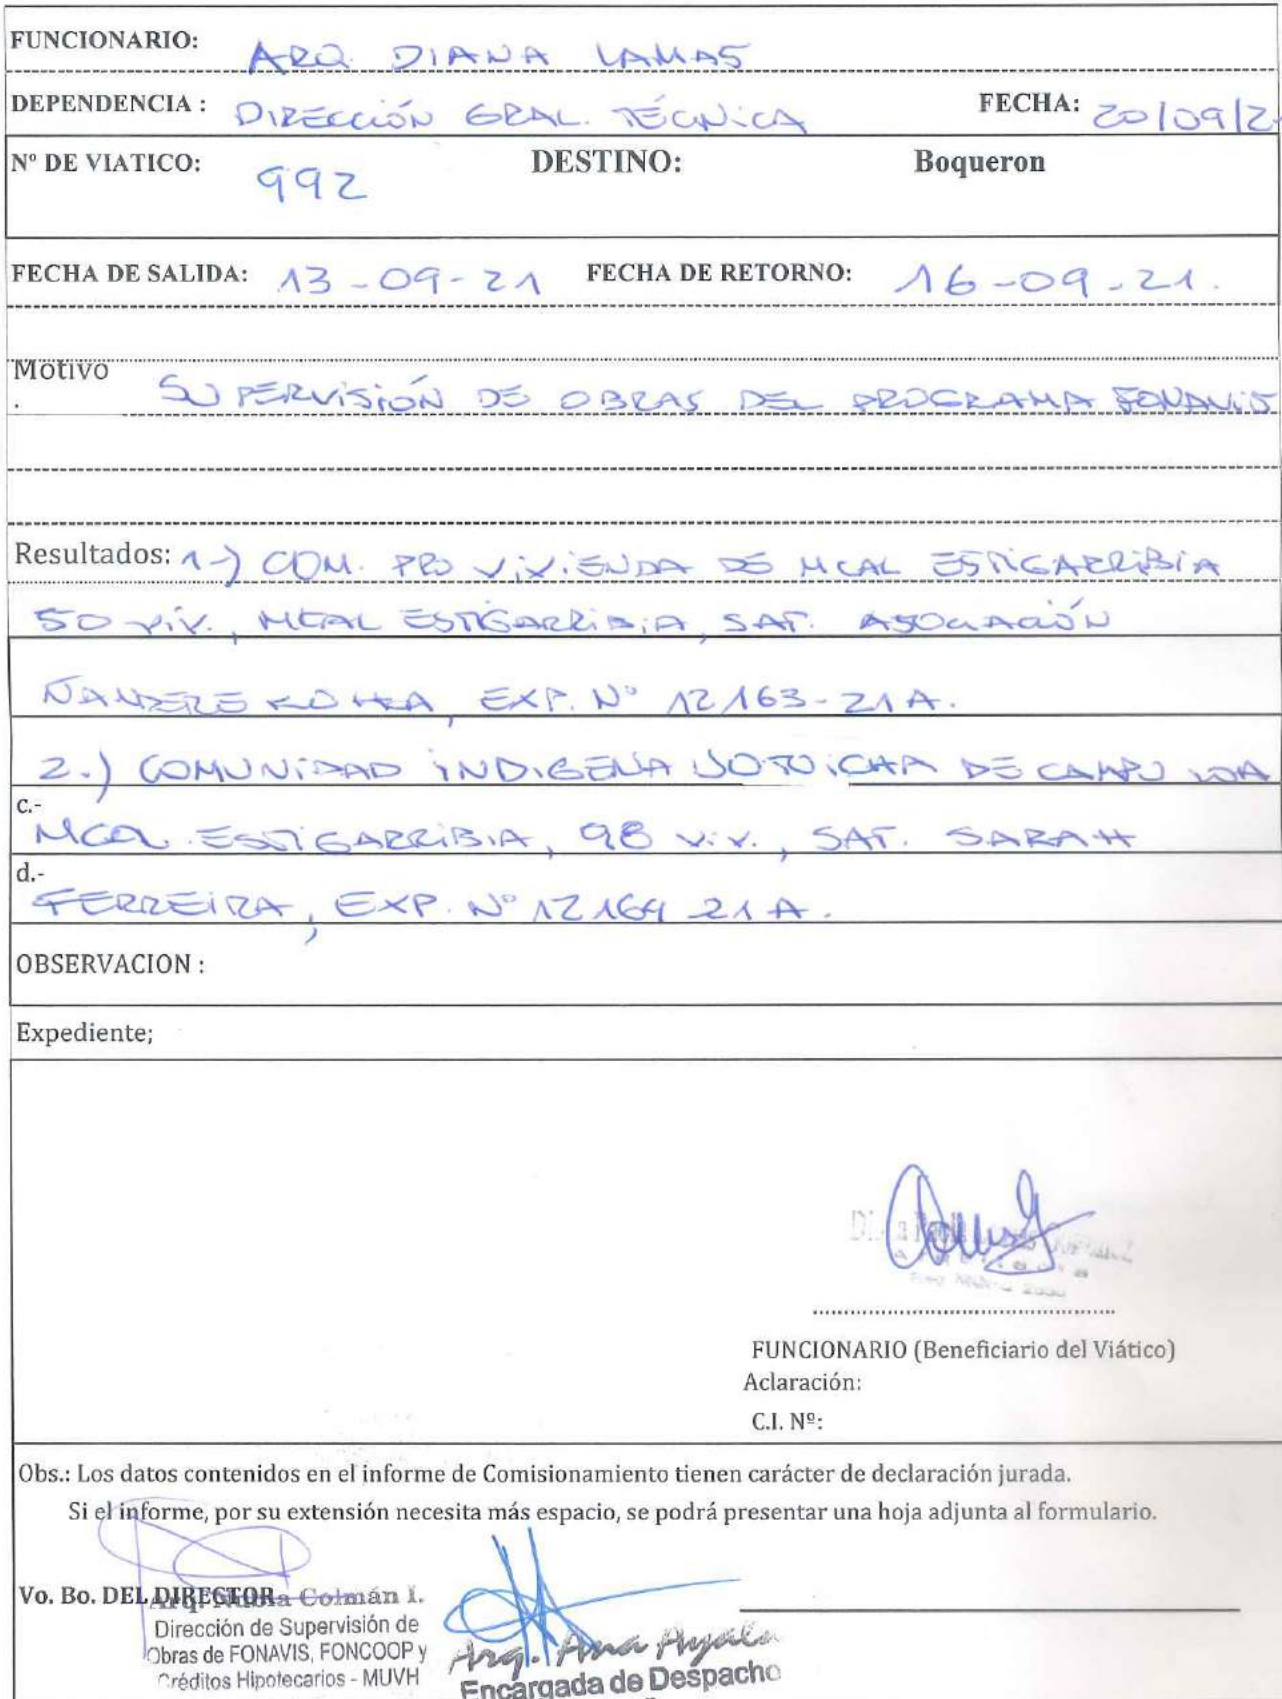 FUNCIONARIO: ARQ. DIANA LAMAS
DEPENDENCIA : DIRECCIÓN GRAL. TÉCNICA FECHA: 20/09/2
Nº DE VIATICO: 992 DESTINO: Boqueron
FECHA DE SALIDA: 13-09-21 FECHA DE RETORNO: 16-09-21.
Motivo
. SUPERVISIÓN DE OBRAS DEL PROGRAMA FONAVIS
Resultados: 1-) COM. PRO VIVIENDA DE MCAL ESTIGARRIBIA
50 viv., MCAL ESTIGARRIBIA, SAT. ASOCIACIÓN
EXP. Nº 12163-21A.
2.) COMUNIDAD INDIGENA DE CAMPO LOA
c.-
MCAL. ESTIGARRIBIA, 98 viv., SAT. SARAH
d.-
FERREIRA, EXP. Nº 12164 21A.
OBSERVACION :
Expediente;
FUNCIONARIO (Beneficiario del Viático)
Aclaración:
C.I. Nº:
Obs.: Los datos contenidos en el informe de Comisionamiento tienen carácter de declaración jurada.
Si el informe, por su extensión necesita más espacio, se podrá presentar una hoja adjunta al formulario.
Vo. Bo. DEL DIRECTOR
Arq. Colmán I.
Dirección de Supervisión de
Obras de FONAVIS, FONCOOP y
Créditos Hipotecarios - MUVH
Arq. Ana Ayala
Encargada de Despacho